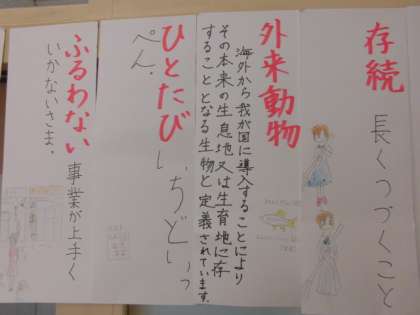 存続
長くつづくこと
外来動物
海外から我が国に導入することにより
その本来の生息地又は生育地に存
することとなる生物と定義されています。
ひとたび
いちどいっ
ぺん。
ふるわない
事業が上手く
いかないさま。